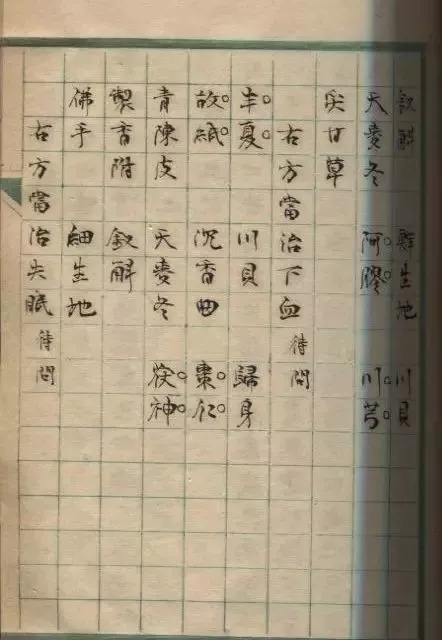 釵斛 鮮生地 川貝
天麥冬 阿膠。 川芎。
炙甘草
右方當治下血 待問
半。夏。 川貝 歸身
故。紙。 沉香曲 棗。仁。
青陳皮 天麥冬 茯。神。
製香附 釵斛
佛手 細生地
右方當治失眠 待問